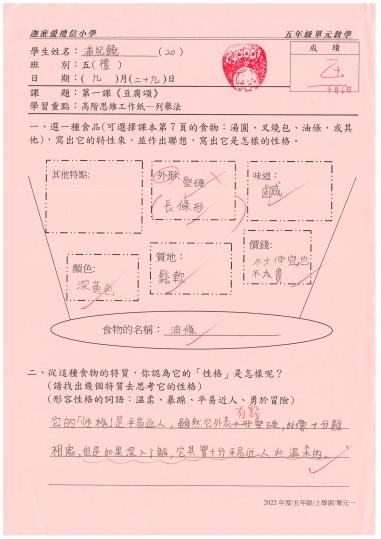 迦密愛禮信小學 五年級單元教學
學生姓名：潘紀曉 (20) 成績
班 別：五(禮) 乙+
日 期：(九)月(二十九)日 十月三日
課 題：第一課《豆腐頌》
學習重點：高階思維工作紙—列舉法
一、選一種食品(可選擇課本第7頁的食物：湯圓、叉燒包、油條，或其
他)，寫出它的特性來，並作出聯想，寫出它是怎樣的性格。
其他特點: 外形: 堅硬 味道:
長條形 鹹
顏色: 質地: 價錢:
深黃色 鬆軟 不大便宜也
不太貴
食物的名稱：油條
二、從這種食物的特質，你認為它的「性格」是怎樣呢？
(請找出幾個特質去思考它的性格)
(形容性格的詞語：溫柔、暴躁、平易近人、勇於冒險)
有點
它的「性格」是平易近人，雖然它外表十非堅硬，好像十分難
相處，但是如果深入了解，它其實十分平易近人和溫柔的。
2022年度/五年級/上學期/單元一